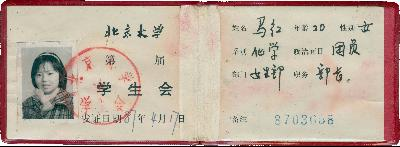 北京大学
第 届
学生会
发证日期81年4月17日
姓名 马红 年龄 20 性别 女
系别 化学 政治面目 团员
部门 女生部 职务 部长
备注 8703038